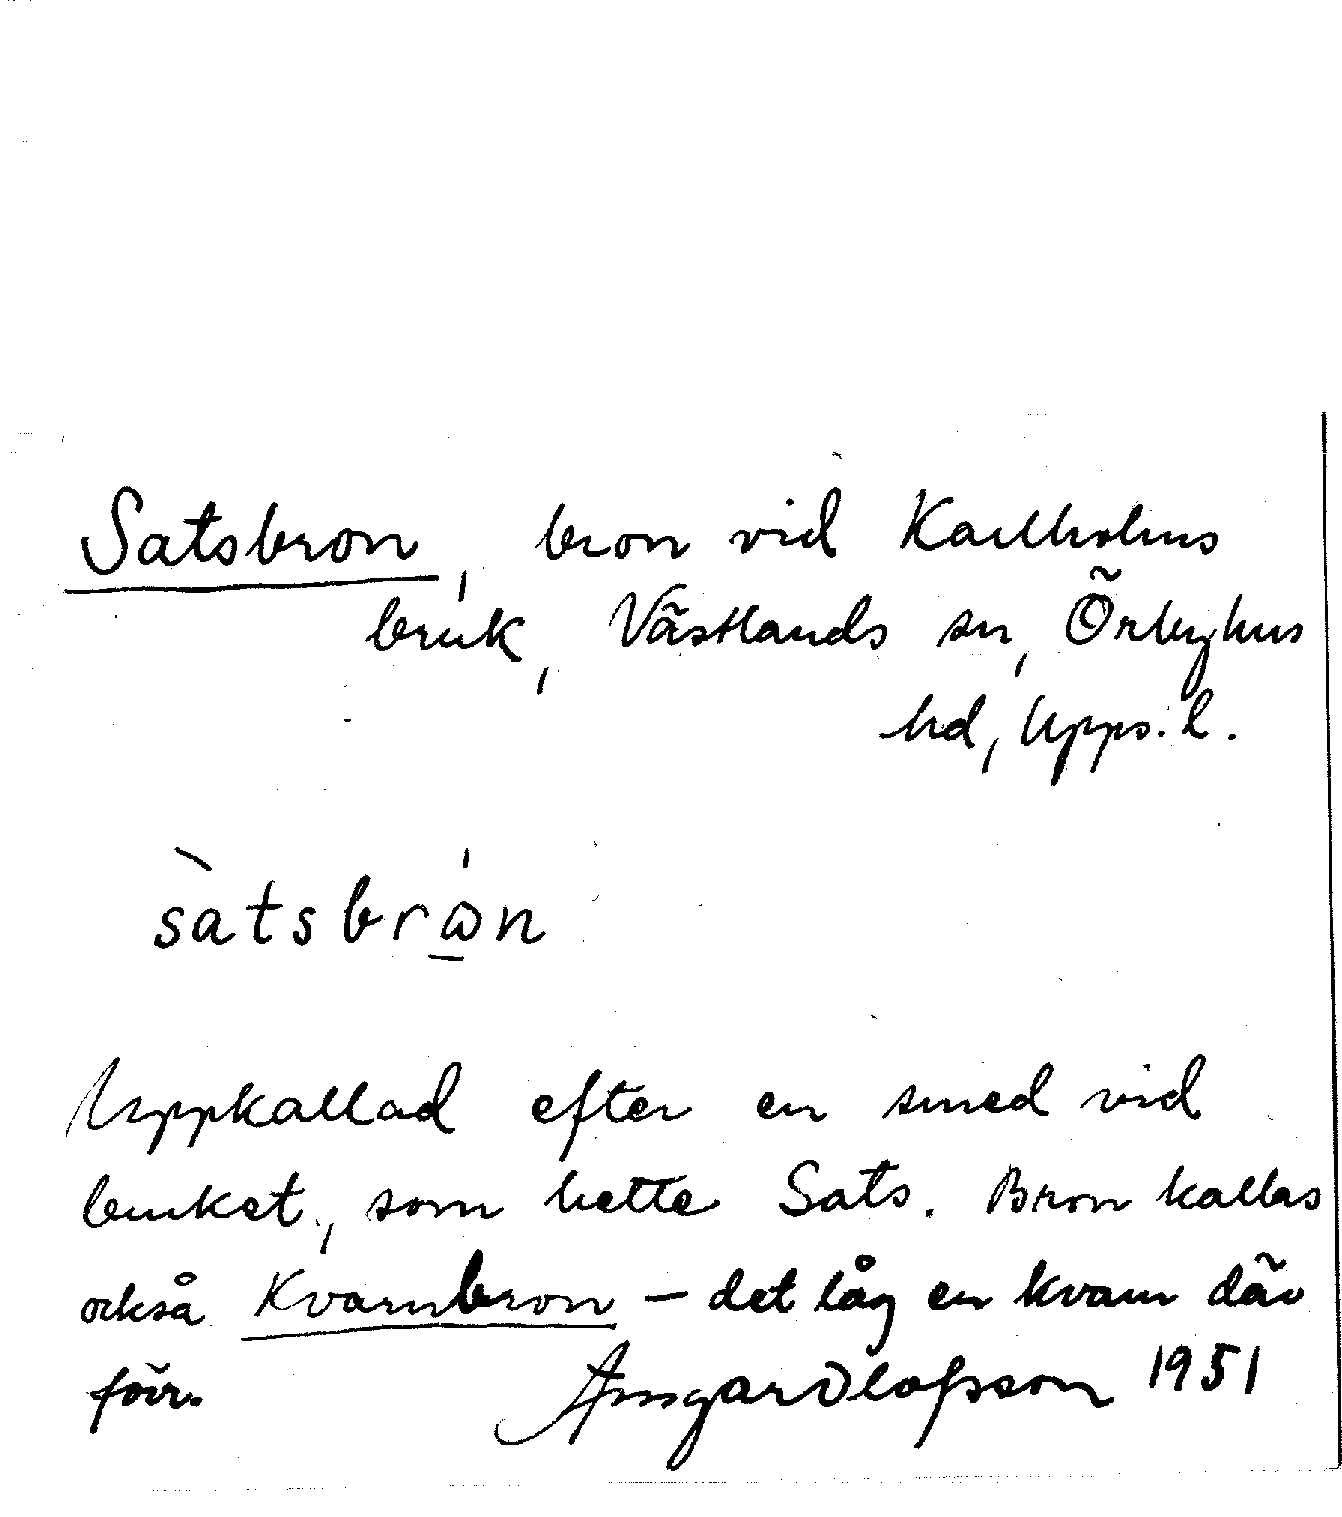 Satsbron, bron vid Karlholms
bruk, Västlands sn, Örbyhus
hd, Upps. l.
sàtsbrώ̲n
Uppkallad efter en smed vid
bruket, som hette Sats. Bron kallas
också Kvarnbron – det låg en kvarn där
förr. Ansgar Olofsson 1951